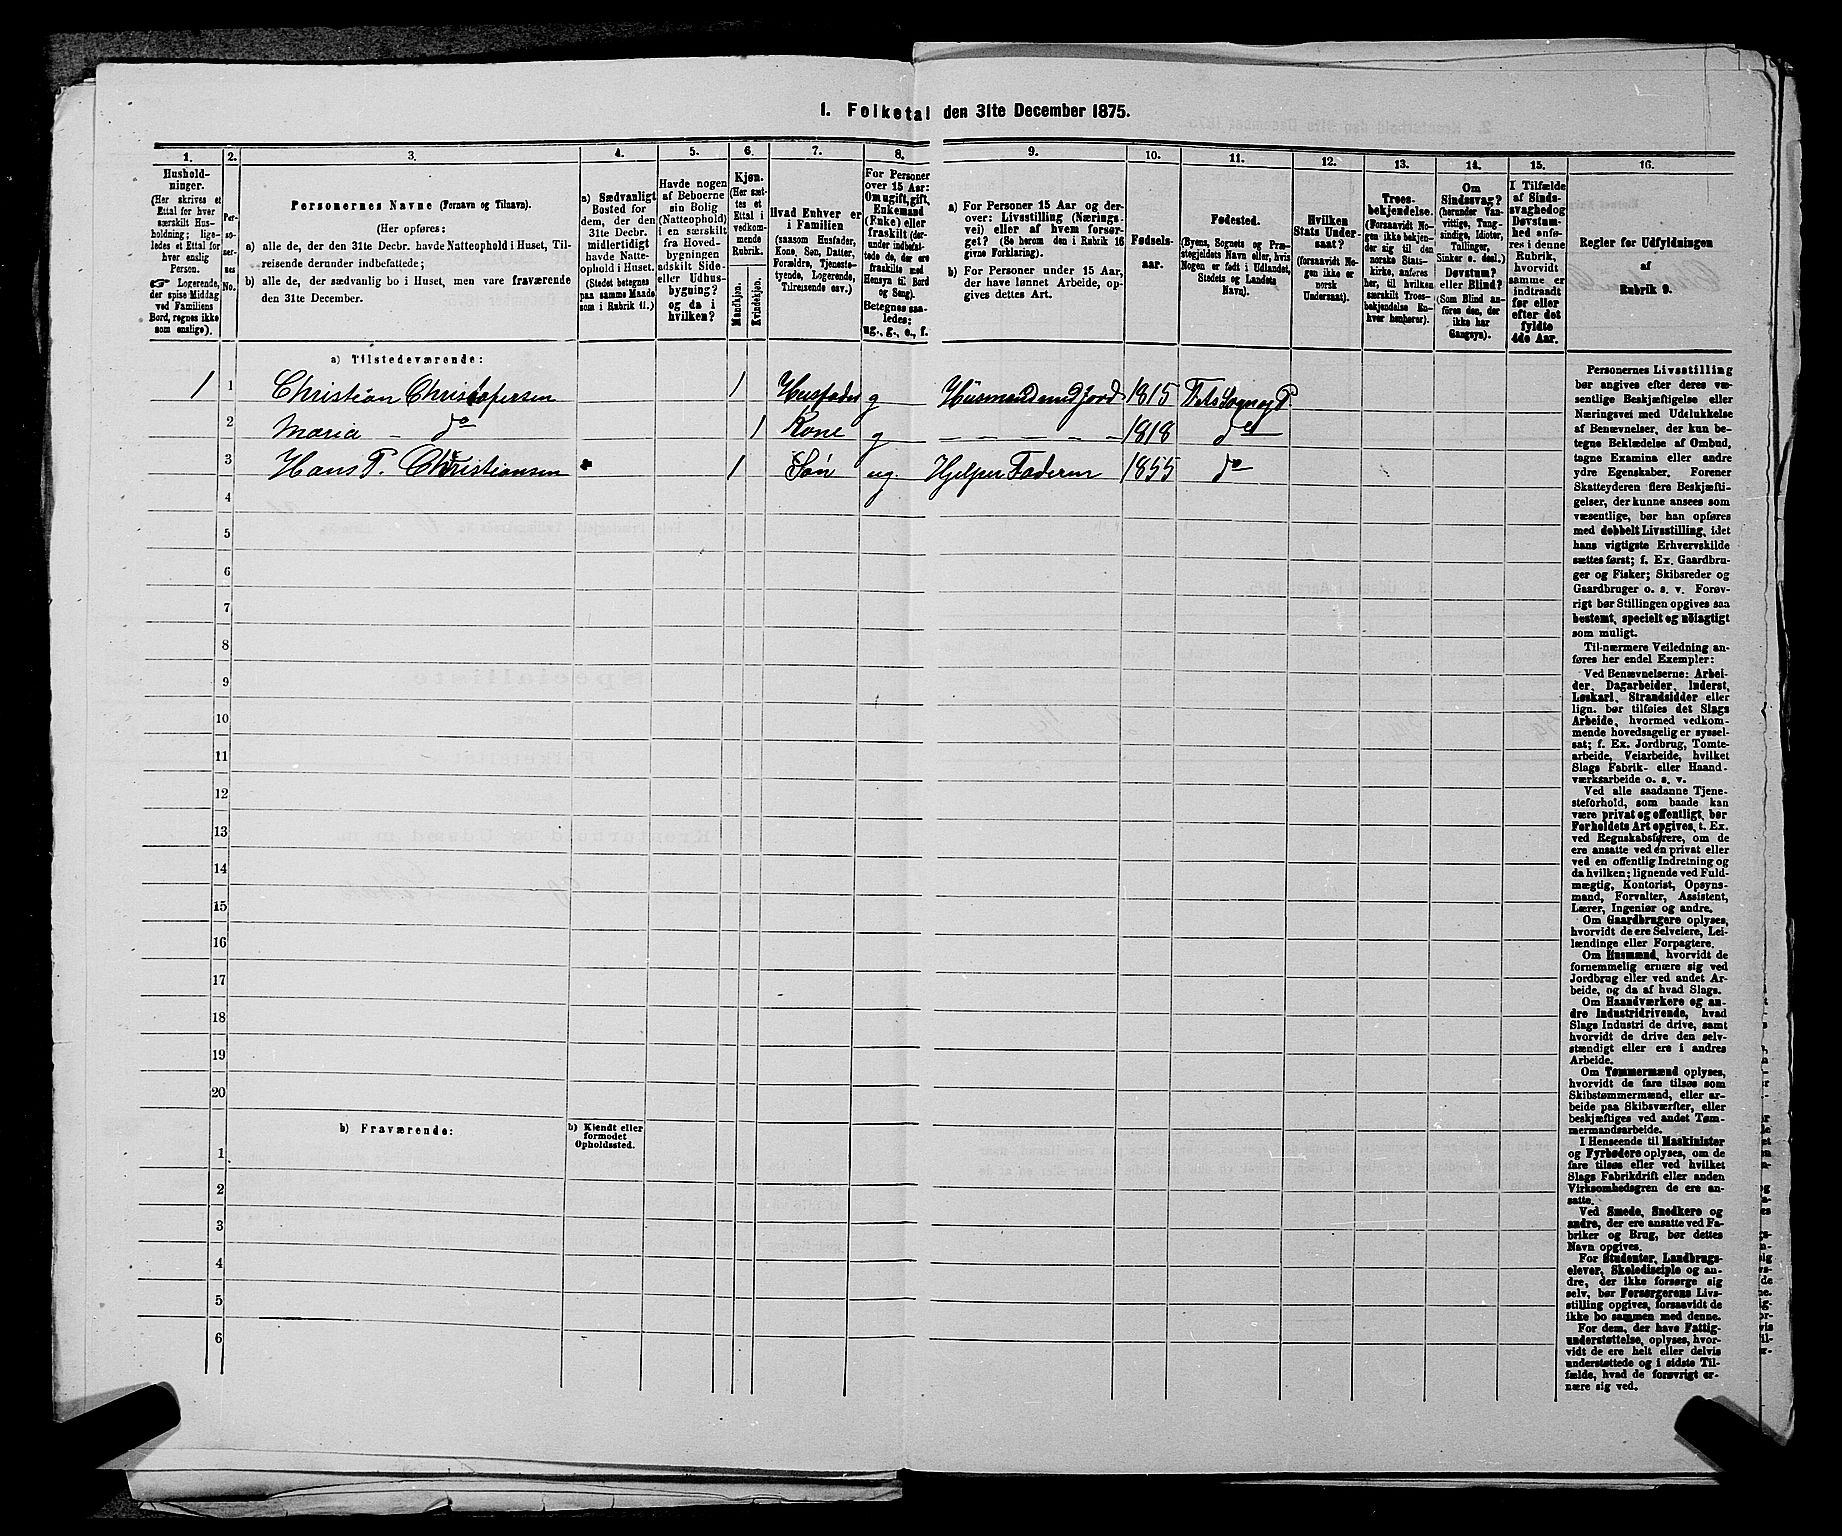 1. Folketal den 31te December 1875.
1.
2.
3.
4.
5.
6.
7.
8.
9.
10.
11.
12.
13.
14.
15.
16.
Hushold-
ninger.
(Her skrives et
Ettal for hver
særskilt Hus-
holdning; lige-
ledes et Ettal for
hver enslig
Person.
☞ Logerende,
der spise Middag
ved Familiens
Bord, regnes ikke
som enslige).
Per-
so-
ner-
nes
No.
Personernes Navne (Fornavn og Tilnavn).
(Her opføres:
a) alle de, der den 31te Decbr. havde Natteophold i Huset, Til-
reisende derunder indbefattede;
b) alle de, der sædvanlig bo i Huset, men vare fraværende
den 31te December.
a) Sædvanligt
Bosted for
dem, der den
31te Decbr.
midlertidigt
havde Natte-
ophold i Huset.
(Stedet betegnes
paa samme Maade
som i Rubrik 11.)
Havde nogen
af Beboerne
sin Bolig
(Natteophold)
i en særskilt
fra Hoved-
bygningen
adskilt Side-
eller Udhus-
bygning?
og da i
hvilken?
Kjøn.
(Her sæt-
tes et
Ettal i
vedkom-
mende
Rubrik.
Mandkjøn.
Kvindekjøn.
Hvad Enhver er
i Familien
(saasom Husfader,
Kone, Søn, Datter,
Forældre, Tjeneste-
tyende, Logerende,
Tilreisende osv.)
For Personer
over 15 Aar:
Om ugift, gift,
Enkemand
(Enke) eller
fraskilt (der-
under indbefat-
tede de, der ere
fraskilte med
Hensyn til Bord
og Seng).
Betegnes saa-
ledes:
ug., g., e., f.
a) For Personer 15 Aar og der-
over: Livsstilling (Nærings-
vei) eller af hvem forsør-
get? (Se herom den i Rubrik 16
givne Forklaring).
b) For Personer under 15 Aar,
der have lønnet Arbeide, op-
gives dettes Art.
Fødsels-
aar.
Fødested.
(Byens, Sognets og Præ-
stegjeldets Navn eller, hvis
Nogen er født i Udlandet,
Stedets og Landets
Navn).
Hvilken
Stats Under-
saat?
(forsaavidt No-
gen ikke er
norsk
Undersaat).
Troes-
bekjendelse.
(Forsaavidt No-
gen ikke bekjen-
der sig til den
norske Stats-
kirke, anføres
her, til hvilken
særskilt Troes-
bekjendelse En-
hver henhører).
Om
Sindssvag?
(herunder Van-
vittige, Tung-
sindige, Idioter,
Tullinger,
Sinker o. desl.)
Døvstum?
eller Blind?
(Som Blind an-
føres den, der
ikke har
Gangsyn).
I Tilfælde
af Sinds-
svaghed og
Døvstum-
hed anfø-
res i denne
Rubrik,
hvorvidt
samme er
indtraadt
før eller
efter det
fyldte
4de Aar.
Regler for Udfyldningen
af
Rubrik 9.
a) Tilstedeværende:
1 1 Christian Christofersen 1 Husfader g Husmand med Jord 1815 Fets Sogn og P
2 Maria — do 1 Kone g — — — — — 1818 do
3 Hans P. Christiansen 1 Søn ug. Hjelper Faderen 1855 do
4
5
6
7
8
9
10
11
12
13
14
15
16
17
18
19
20
b) Fraværende:
b) Kjendt eller
formodet
Opholdssted.
1
2
3
4
5
6
Personernes Livsstilling
bør angives efter deres væ-
sentlige Beskjæftigelse eller
Næringsvei med Udelukkelse
af Benævnelser, der kun be-
tegne Beklædelse af Ombud,
tagne Examina eller andre
ydre Egenskaber. Forener
Skatteyderen flere Beskjæfti-
gelser, der kunne ansees som
væsentlige, bør han opføres
med dobbelt Livsstilling, idet
hans vigtigste Erhvervskilde
sættes først; f. Ex. Gaardbru-
ger og Fisker; Skibsreder og
Gaardbruger o. s. v. Forøv-
rigt bør Stillingen opgives saa
bestemt, specielt og nøiagtigt
som muligt.
Til nærmere Veiledning an-
føres her endel Exempler:
Ved Benævnelserne: Arbei-
der, Dagarbeider, Inderst,
Løskarl, Strandsidder eller
lign. bør tilføies det Slags
Arbeide, hvormed vedkom-
mende hovedsagelig er syssel-
sat; f. Ex. Jordbrug, Tomte-
arbeide, Veiarbeide, hvilket
Slags Fabrik- eller Haand-
værksarbeide o. s. v.
Ved alle saadanne Tjene-
steforhold, som baade kan
være privat og offentligt, bør
Forholdets Art opgives, t. Ex.
ved Regnskabsførere, om de
ere ansatte ved en privat eller
ved en offentlig Indretning og
da hvilken; lignende ved Fuld-
mægtig, Kontorist, Opsyns-
mand, Forvalter, Assistent,
Lærer, Ingeniør og andre.
Om Gaardbrugere oplyses,
hvorvidt de ere Selveiere, Lei-
lændinge eller Forpagtere.
Om Husmænd, hvorvidt de
fornemmelig ernære sig ved
Jordbrug eller ved andet Ar-
beide, og da af hvad Slags.
Om Haandværkere og an-
dre Industridrivende, hvad
Slags Industri de drive, samt
hvorvidt de drive den selv-
stændigt eller ere i andres
Arbeide.
Om Tømmermænd oplyses,
hvorvidt de fare tilsøs som
Skibstømmermænd, eller ar-
beide paa Skibsværfter, eller
beskjæftiges ved andet Tøm-
mermandsarbeide.
I Henseende til Maskinister
og Fyrbødere oplyses, om de
fare tilsøs eller ved hvilket
Slags Fabrikdrift eller anden
Virksomhedsgren de ere an-
satte.
Ved Smede, Snedkere og
andre, der ere ansatte ved Fa-
briker og Brug, bør dettes
Navn opgives.
For Studenter, Landbrugs-
elever, Skoledisciple og an-
dre, der ikke forsørge sig
selv, bør Forsørgerens Livs-
stilling opgives, forsaavidt de
ikke bo sammen med denne.
For dem, der have Fattig-
understøttelse, oplyses, hvor-
vidt de ere helt eller delvis
understøttede og i sidste Til-
fælde, hvad de forøvrigt er-
nære sig ved.